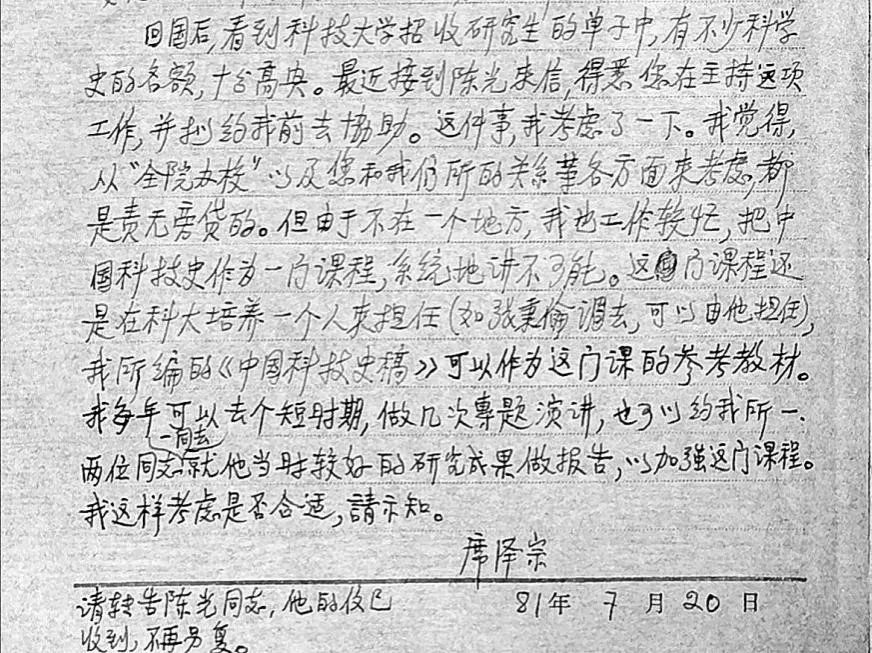 回国后,看到科技大学招收研究生的单子中,有不少科学
史的名额,十分高兴。最近接到陈光来信,得悉您在主持这项
工作,并拟约我前去协助。这件事,我考虑了一下。我觉得,
从“全院办校”以及您和我们所的关系等各方面来考虑,都
是责无旁贷的。但由于不在一个地方,我也工作较忙,把中
国科技史作为一门课程,系统地讲不可能。这门课程还
是在科大培养一个人来担任(如张秉倫调去,可以由他担任),
我所编的《中国科技史稿》可以作为这门课的参考教材。
我每年可以去个短时期,做几次專题演讲,也可以约我所一、
一同去
两位同志就他当时较好的研究成果做报告,以加强这门课程。
我这样考虑是否合适,請示知。
席泽宗
请转告陈光同志,他的信已
收到,不再另复。
81年 7 月 20 日